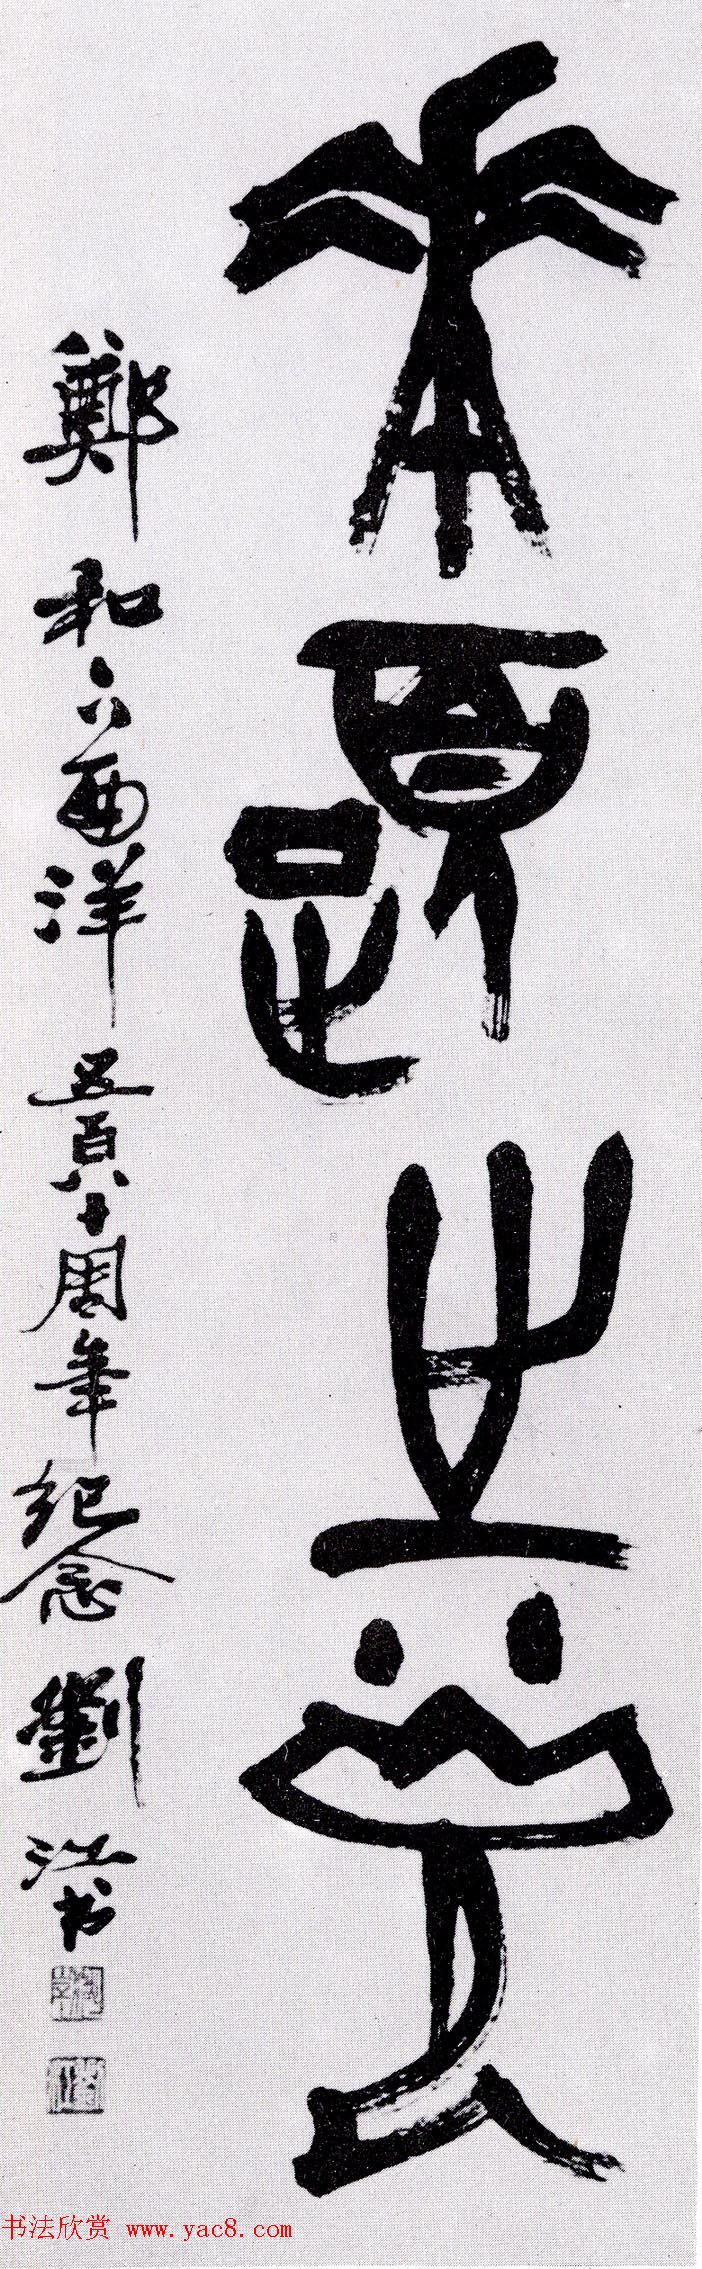 華夏之光
鄭和下西洋五百八十周年紀念 劉江书
书法欣赏 www.yac8.com